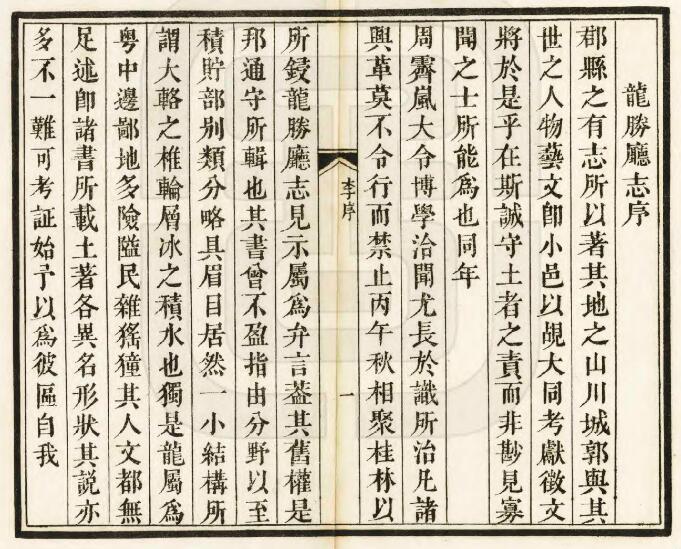 龍勝廳志序
郡縣之有志所以著其地之山川城郭與其
世之人物藝文卽小邑以覘大同考獻徵文
將於是乎在斯誠守土者之責而非尠見寡
聞之士所能爲也同年
周霽嵐大令博學洽聞尤長於識所治凡諸
興革莫不令行而禁止丙午秋相聚桂林以
李序
一
所鋟龍勝廳志見示屬爲弁言葢其舊權是
邦通守所輯也其書曾不盈指由分野以至
積貯部别類分略具眉目居然一小結構所
謂大輅之椎輪層冰之積水也獨是龍屬爲
粤中邊鄙地多險隘民雜猺獞其人文都無
足述卽諸書所載土著各異名形狀其説亦
多不一難可考証始予以爲彼區自我